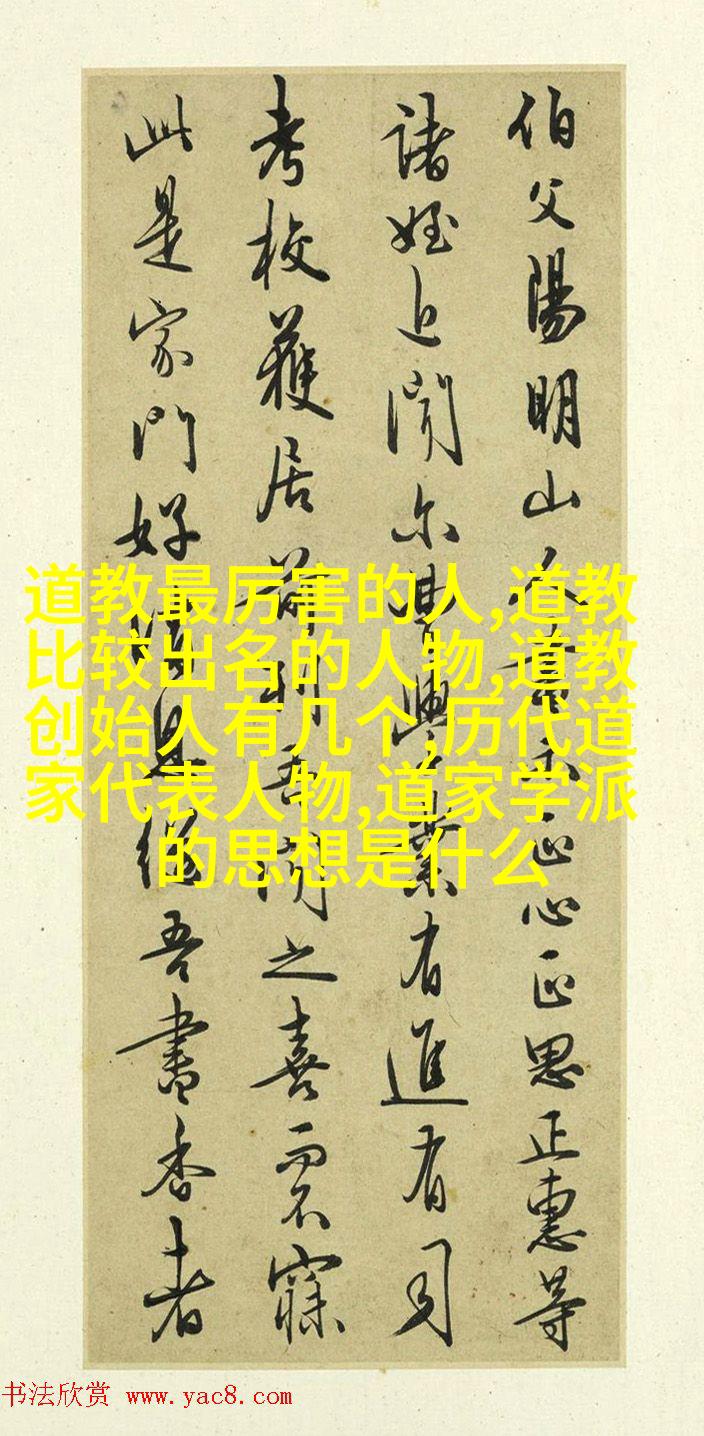 伯父陽明山人書示正心正思正惠等
諸姪近聞尔曹學業有進有司
考校獲居前列吾聞之喜而不寐
此是家門好消息繼吾書香者
道教最厉害的人,道教
比较出名的人物,道教
创始人有几个,历代道
家代表人物,道家学派
的思想是什么
书法欣赏 www.yac8.com